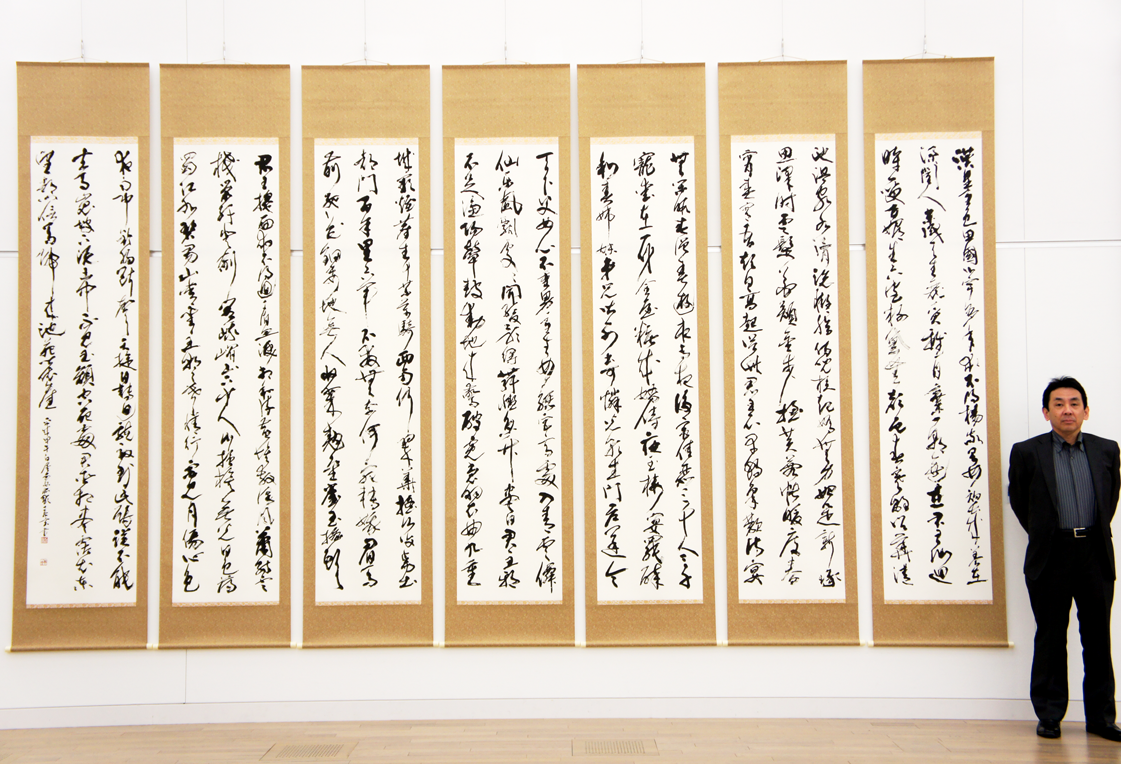 漢皇重色思傾國御宇多年求不得楊家有女初長成養在
深閨人未識天生麗質難自棄一朝選在君王側迴
眸一笑百媚生六宮粉黛無顔色春寒賜浴華清
池温泉水滑洗凝脂侍兒扶起嬌無力始是新承
恩澤時雲鬢花顔金步揺芙蓉帳暖度春
宵春宵苦短日高起從此君王不早朝承歡侍宴
無閑暇春從春遊夜專夜後宮佳麗三千人三千
寵愛在一身金屋粧成嬌侍夜玉樓宴罷醉
和春姉妹弟兄皆列土可憐光彩生門戸遂令
天下父母心不重生男重生女驪宮高處入青雲僊
樂風飄處處聞緩歌慢舞凝絲竹盡日君王看
不足漁陽鼙鼓動地來驚破霓裳羽衣曲九重
城闕煙塵生千乘萬騎西南行翠華揺揺行復止西出
都門百餘里六軍不發無奈何宛轉蛾眉馬
前死花鈿委地無人収翠翹金雀玉搔頭
君王掩面救不得迴看血淚相和流黄埃散漫風蕭索雲
棧縈紆登劍閣峨嵋山下少人行旌旗無光日色薄
蜀江水碧蜀山青聖主朝朝暮暮情行宮見月傷心色
夜雨聞鈴腸斷聲天旋日轉迴龍馭到此躊躇不能
去馬嵬坡下泥土中不見玉顔空死處君臣相顧盡霑衣東
望都門信馬歸來池苑皆依舊